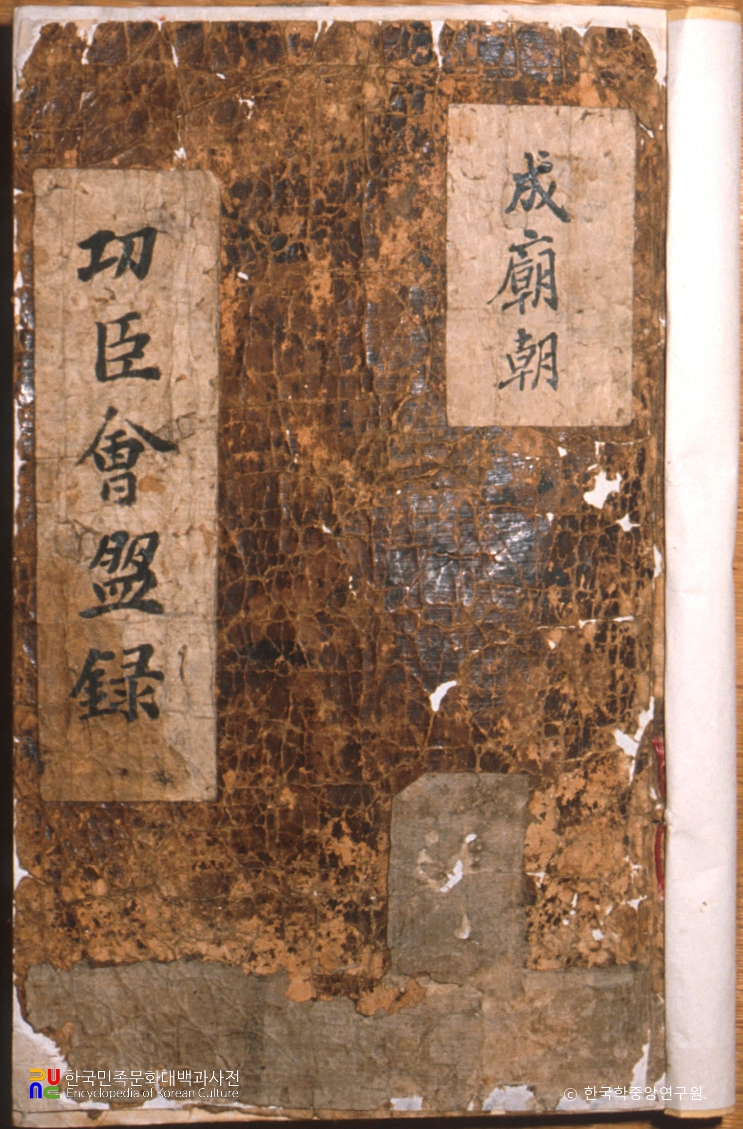 成廟朝
功臣會盟録
한국민족문화대백과사전
Encyclopedia of Korean Culture
© 한국학중앙연구원